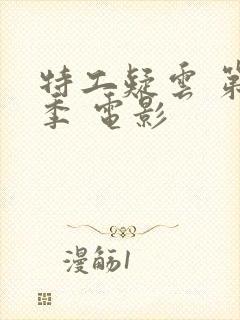 特工疑雲 第
季 電影
漫觞1